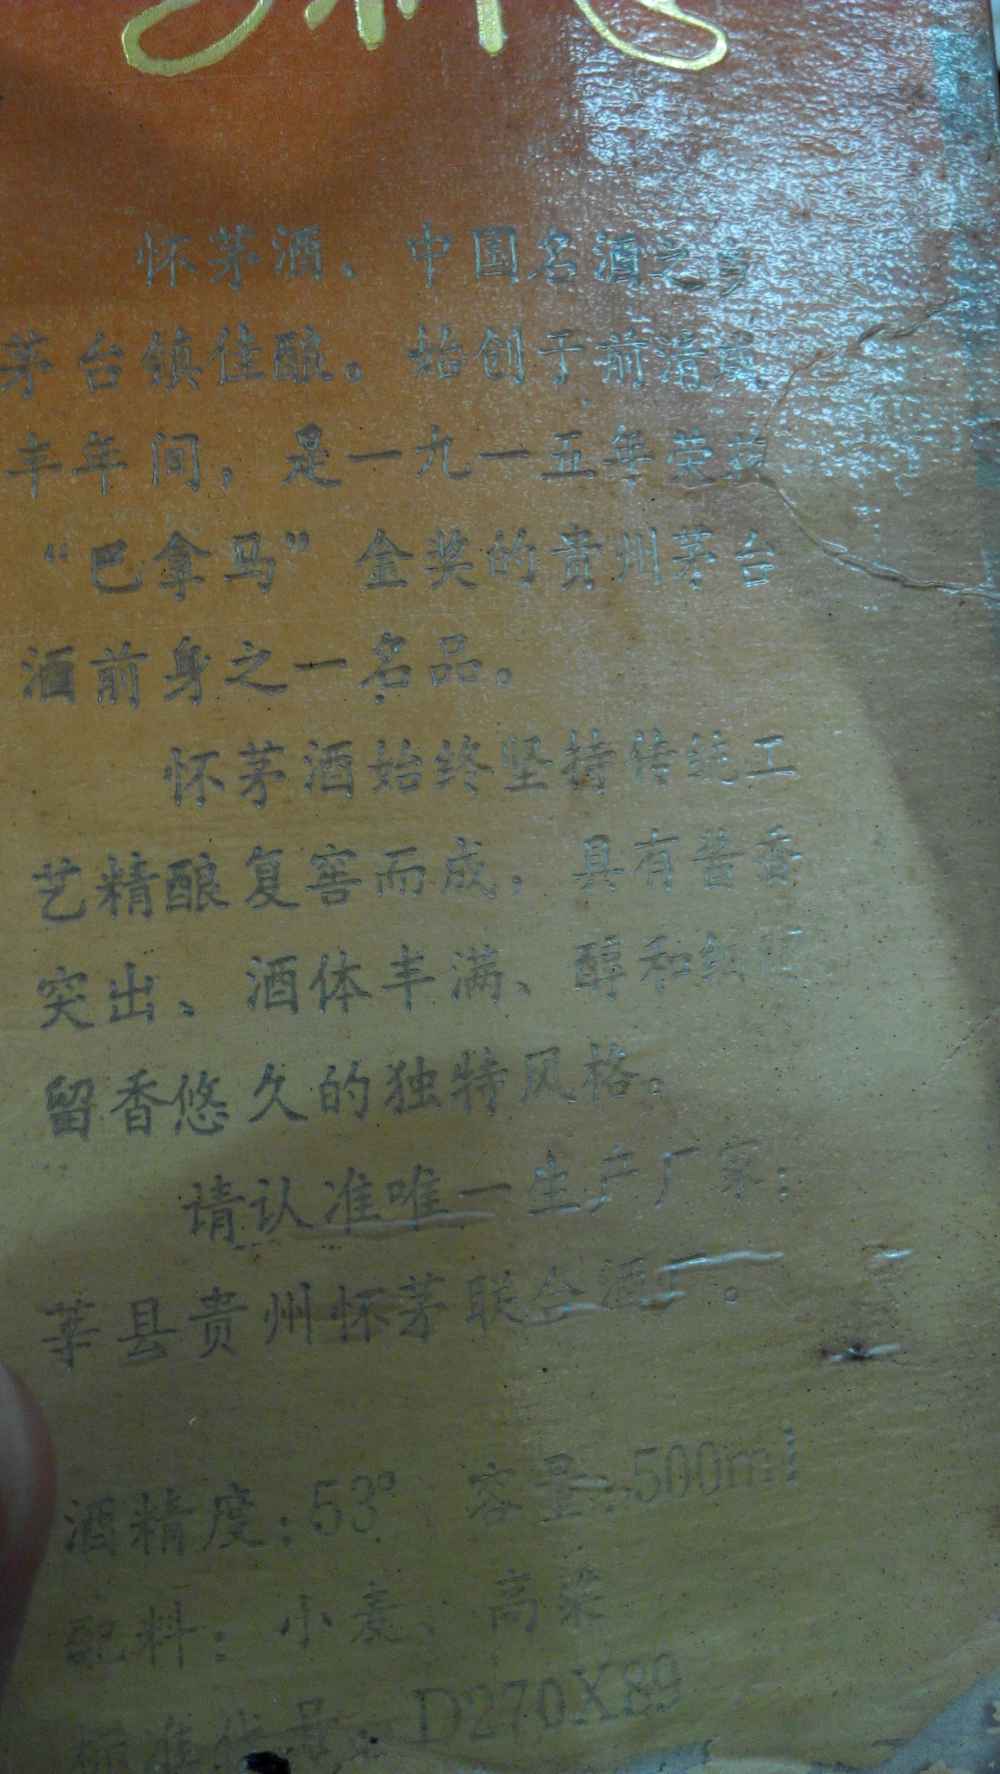 怀茅酒、中国名酒之乡
茅台镇佳酿。始创于前清咸
丰年间，是一九一五年荣获
“巴拿马”金奖的贵州茅台
酒前身之一名品。
怀茅酒始终坚持传统工
艺精酿复窖而成，具有酱香
突出、酒体丰满、醇和
留香悠久的独特风格。
请认准唯一生产厂家：
莘县贵州怀茅联合酒厂。
酒精度：53° 容量：500ml
配料：小麦、高粱
标准代号：D270X89